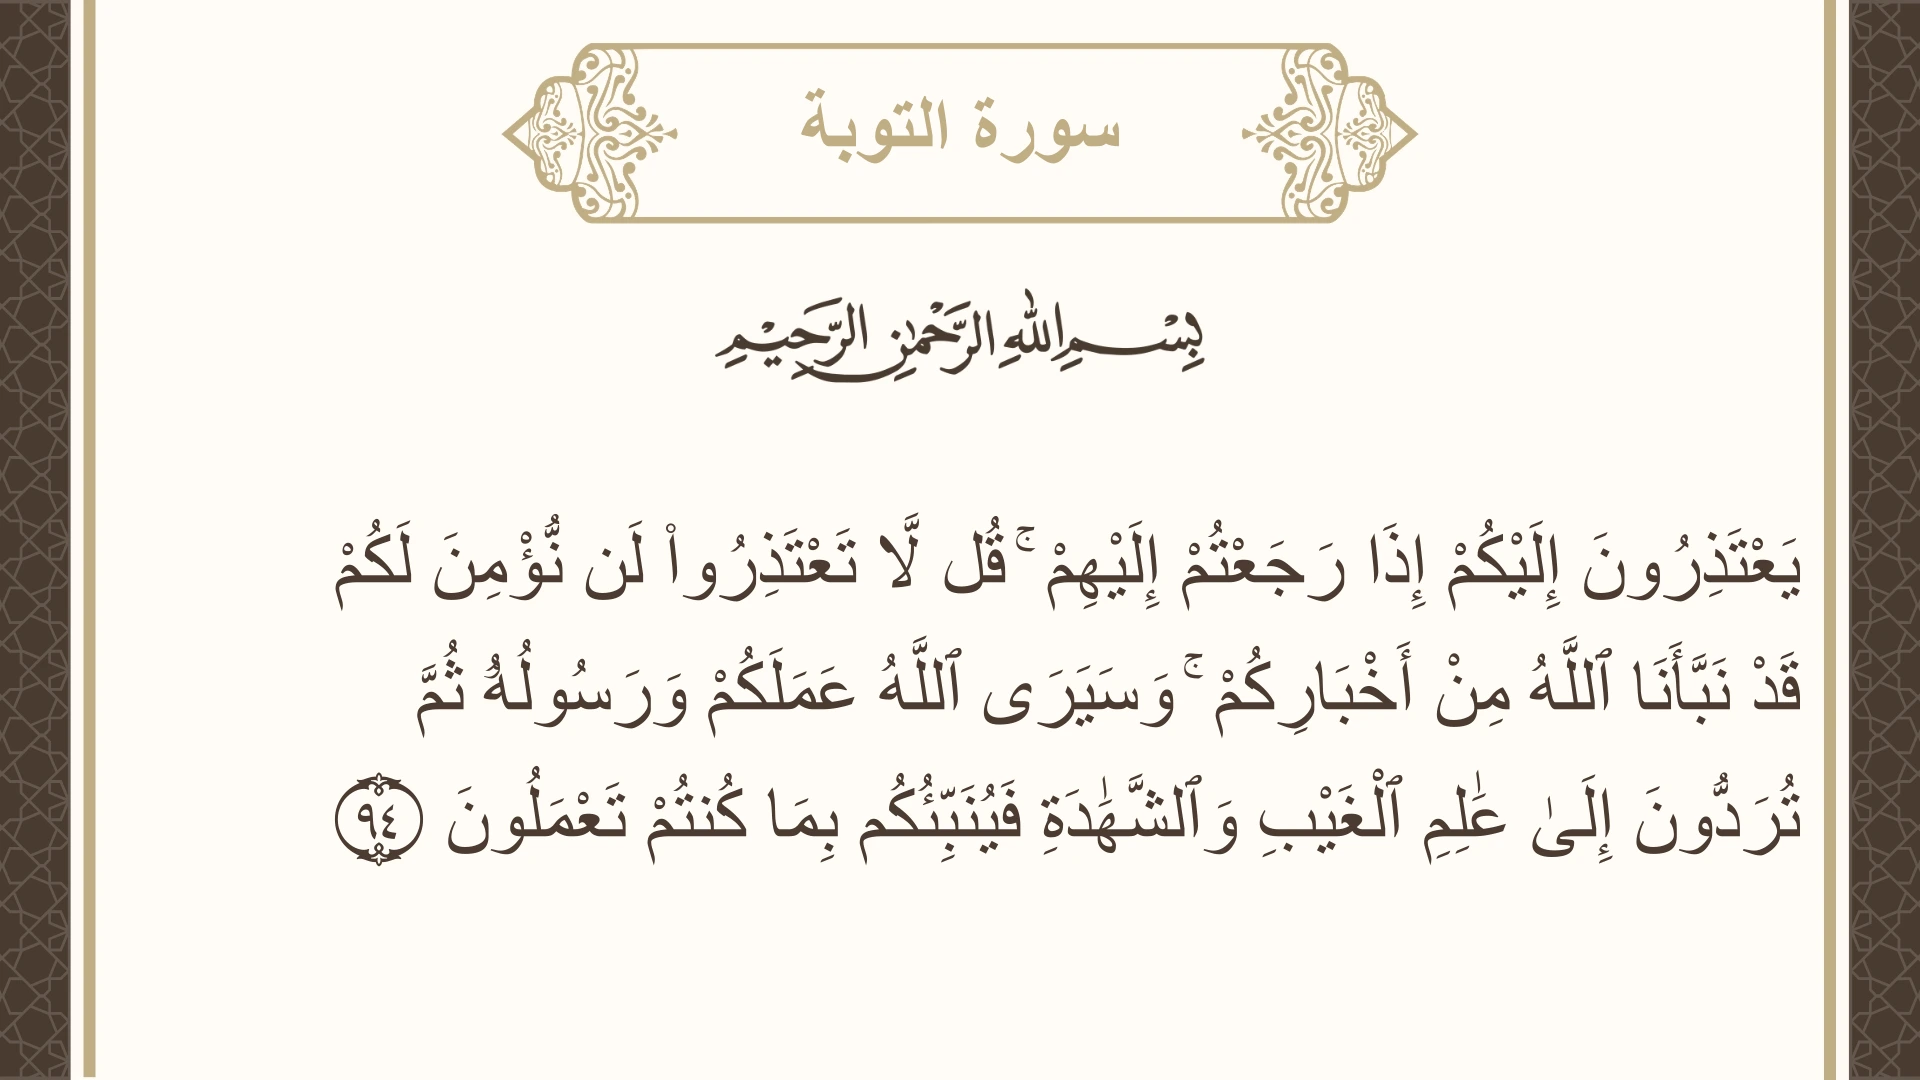 سورة التوبة
بِسْمِ اللهِ الرَّحْمٰنِ الرَّحِيْمِ
يَعْتَذِرُونَ إِلَيْكُمْ إِذَا رَجَعْتُمْ إِلَيْهِمْ ۚ قُل لَّا تَعْتَذِرُوا۟ لَن نُّؤْمِنَ لَكُمْ
قَدْ نَبَّأَنَا ٱللَّهُ مِنْ أَخْبَارِكُمْ ۚ وَسَيَرَى ٱللَّهُ عَمَلَكُمْ وَرَسُولُهُۥ ثُمَّ
تُرَدُّونَ إِلَىٰ عَـٰلِمِ ٱلْغَيْبِ وَٱلشَّهَـٰدَةِ فَيُنَبِّئُكُم بِمَا كُنتُمْ تَعْمَلُونَ ٩٤